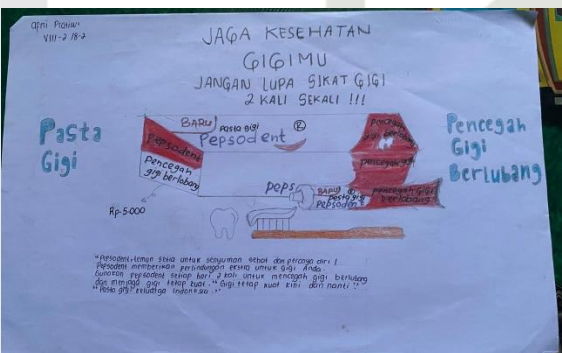 VIII-2 /8-2
JAGA KESEHATAN
GIGIMU
JANGAN LUPA SIKAT GIGI
2 KALI SEKALI !!!
Pasta
Gigi
BARU!
Pasta gigi
Pepsodent
Pepsodent
Pencegah
gigi berlobang
Rp.5000
Pencegah
gigi berlobang
Pencegah gigi
peps
BARU
pasta gigi
Pepsodent
Pencegah Gigi
Berlubang
Pencegah
Gigi
Berlubang
"Pepsodent, teman setia untuk senyuman sehat dan percaya diri!
Pepsodent memberikan perlindungan ekstra untuk gigi Anda.
Gunakan pepsodent setiap hari 2 kali untuk mencegah gigi berlubang
dan menjaga gigi tetap kuat. "Gigi tetap kuat kini dan nanti !"
"Pasta gigi keluarga Indonesia."